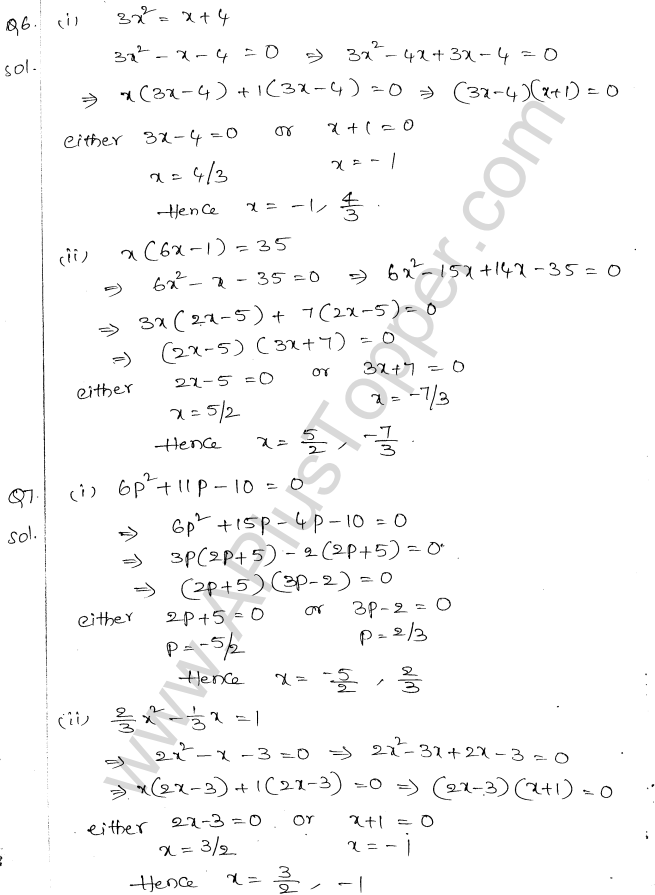 Q6. (i) 3x² = x+4
Sol. 3x² - x - 4 = 0 ⇒ 3x² - 4x + 3x - 4 = 0
⇒ x(3x-4) + 1(3x-4) = 0 ⇒ (3x-4)(x+1) = 0
either 3x-4=0 or x+1=0
x = 4/3 x = -1
Hence x = -1, 4/3.
(ii) x(6x-1) = 35
⇒ 6x² - x - 35 = 0 ⇒ 6x² - 15x + 14x - 35 = 0
⇒ 3x(2x-5) + 7(2x-5) = 0
⇒ (2x-5) (3x+7) = 0
either 2x-5 = 0 or 3x+7 = 0
x = 5/2 x = -7/3
Hence x = 5/2, -7/3.
Q7. (i) 6p² + 11p - 10 = 0
Sol. ⇒ 6p² + 15p - 4p - 10 = 0
⇒ 3p(2p+5) - 2(2p+5) = 0.
⇒ (2p+5)(3p-2) = 0
either 2p+5 = 0 or 3p-2 = 0
p = -5/2 p = 2/3
Hence x = -5/2, 2/3
(ii) 2/3 x² - 1/3 x = 1
⇒ 2x² - x - 3 = 0 ⇒ 2x² - 3x + 2x - 3 = 0
⇒ x(2x-3) + 1(2x-3) = 0 ⇒ (2x-3)(x+1) = 0
either 2x-3 = 0. or x+1 = 0
x = 3/2 x = -1
Hence x = 3/2, -1
www.APlusTopper.com